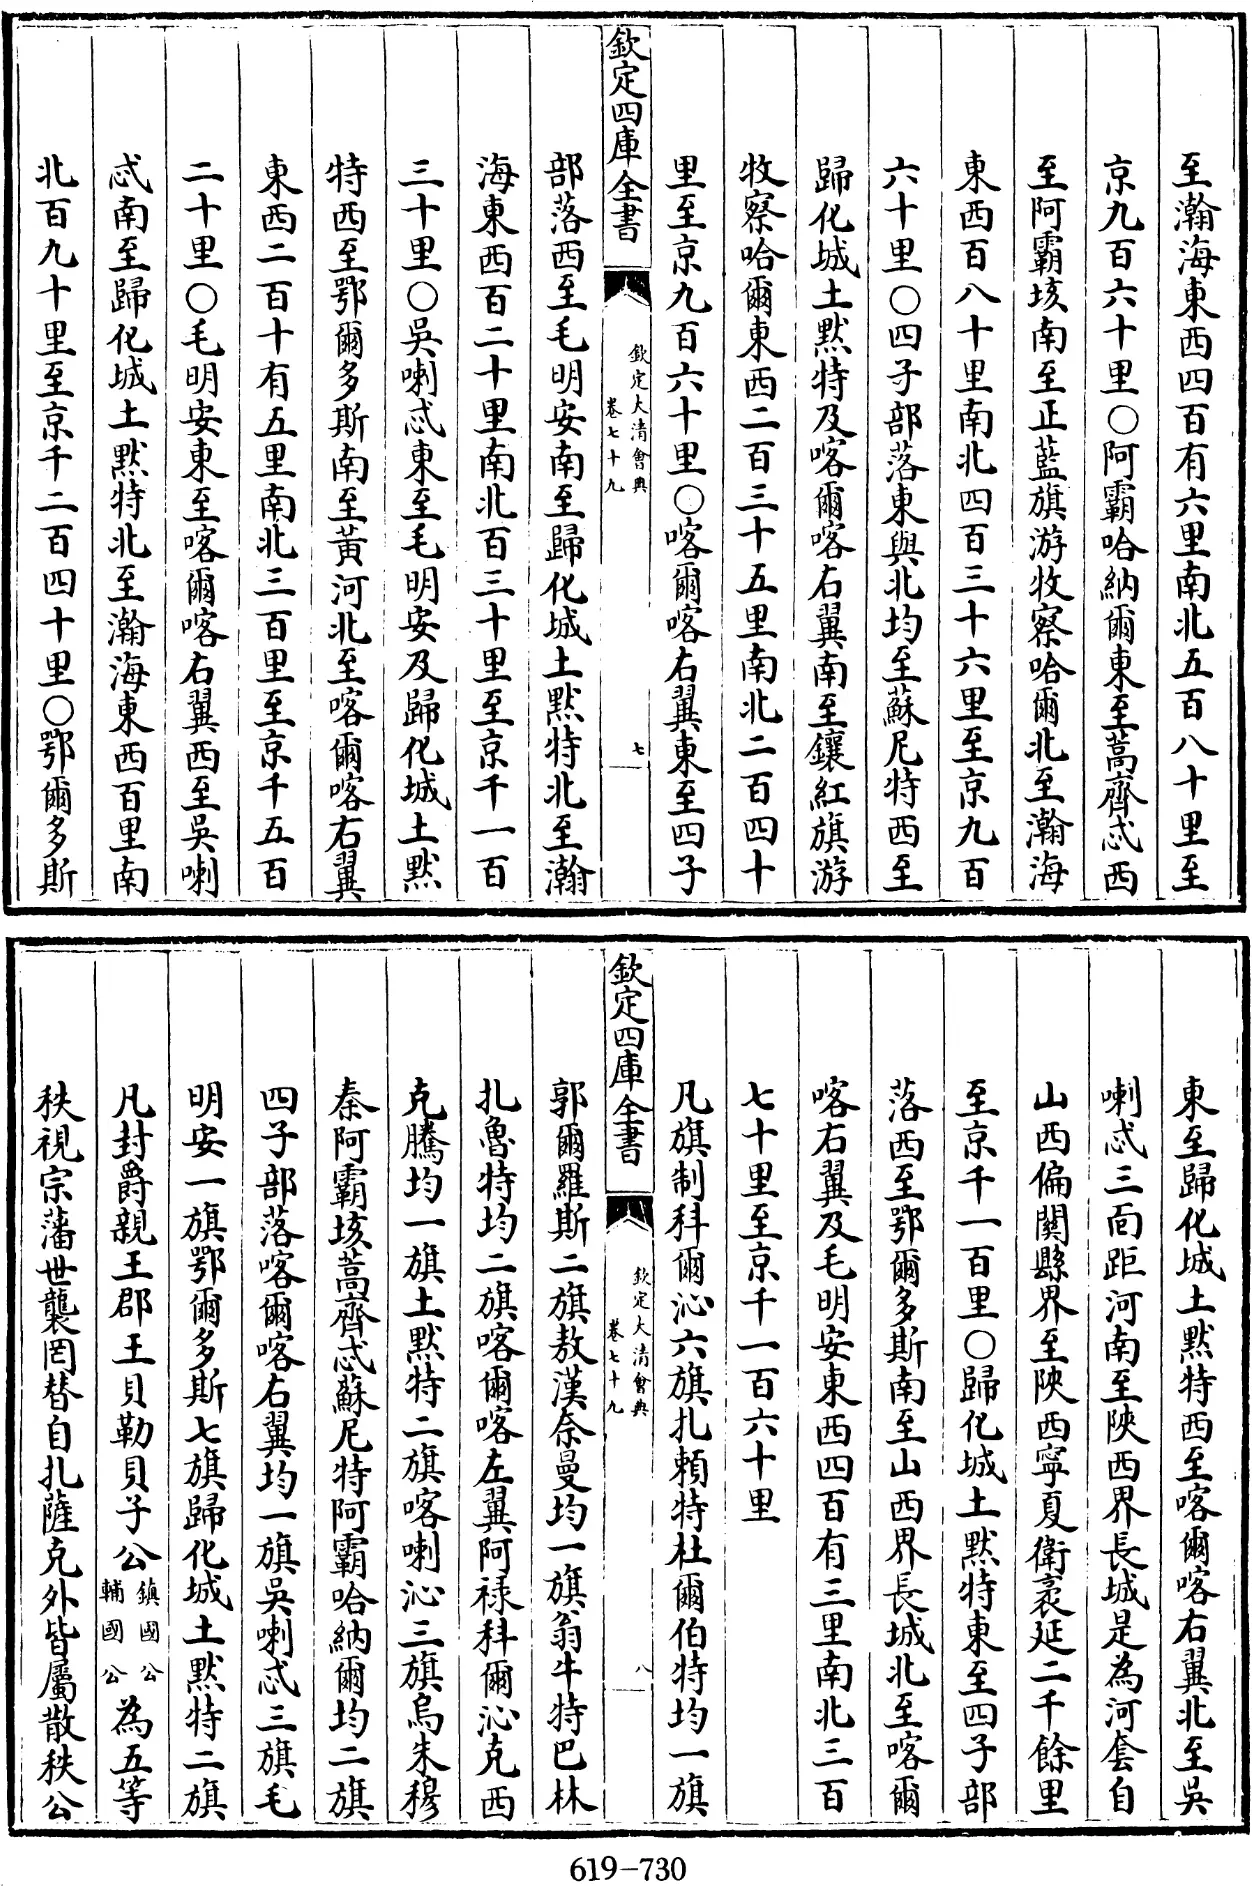 至瀚海東西四百有六里南北五百八十里至
京九百六十里○阿霸哈納爾東至蒿齊忒西
至阿霸垓南至正藍旗游牧察哈爾北至瀚海
東西百八十里南北四百三十六里至京九百
六十里○四子部落東與北均至蘇尼特西至
歸化城土默特及喀爾喀右翼南至鑲紅旗游
牧察哈爾東西二百三十五里南北二百四十
里至京九百六十里○喀爾喀右翼東至四子
欽定四庫全書
欽定大清會典
卷七十九
七
部落西至毛明安南至歸化城土默特北至瀚
海東西百二十里南北百三十里至京千一百
三十里○吳喇忒東至毛明安及歸化城土默
特西至鄂爾多斯南至黃河北至喀爾喀右翼
東西二百十有五里南北三百里至京千五百
二十里○毛明安東至喀爾喀右翼西至吳喇
忒南至歸化城土默特北至瀚海東西百里南
北百九十里至京千二百四十里○鄂爾多斯
東至歸化城土默特西至喀爾喀右翼北至吳
喇忒三面距河南至陝西界長城是為河套自
山西偏關縣界至陝西寧夏衛袤延二千餘里
至京千一百里○歸化城土默特東至四子部
落西至鄂爾多斯南至山西界長城北至喀爾
喀右翼及毛明安東西四百有三里南北三百
七十里至京千一百六十里
凡旗制科爾沁六旗扎賴特杜爾伯特均一旗
欽定四庫全書
欽定大清會典
卷七十九
八
郭爾羅斯二旗敖漢奈曼均一旗翁牛特巴林
扎魯特均二旗喀爾喀左翼阿祿科爾沁克西
克騰均一旗土默特二旗喀喇沁三旗烏朱穆
秦阿霸垓蒿齊忒蘇尼特阿霸哈納爾均二旗
四子部落喀爾喀右翼均一旗吳喇忒三旗毛
明安一旗鄂爾多斯七旗歸化城土默特二旗
凡封爵親王郡王貝勒貝子公鎮國公輔國公為五等
秩視宗藩世襲罔替自扎薩克外皆屬散秩公
619-730